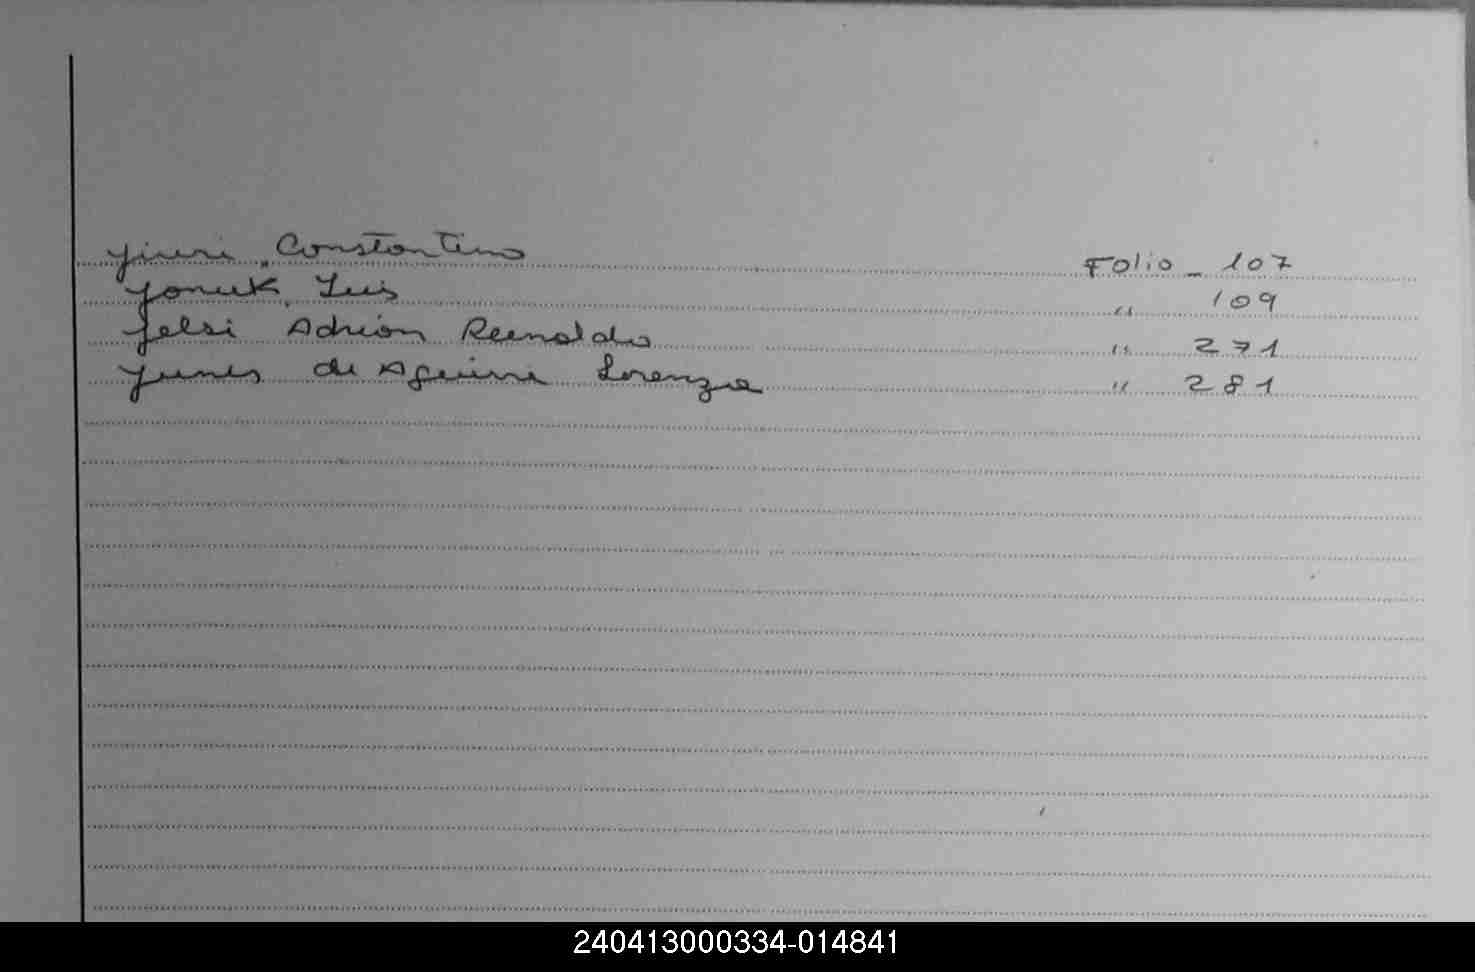 Yiuri, Constantino Folio - 107
Yonuk, Luis " 109
Yelsi Adrián Reinaldo " 271
Yunes de Aguirre Lorenza " 281
240413000334-014841